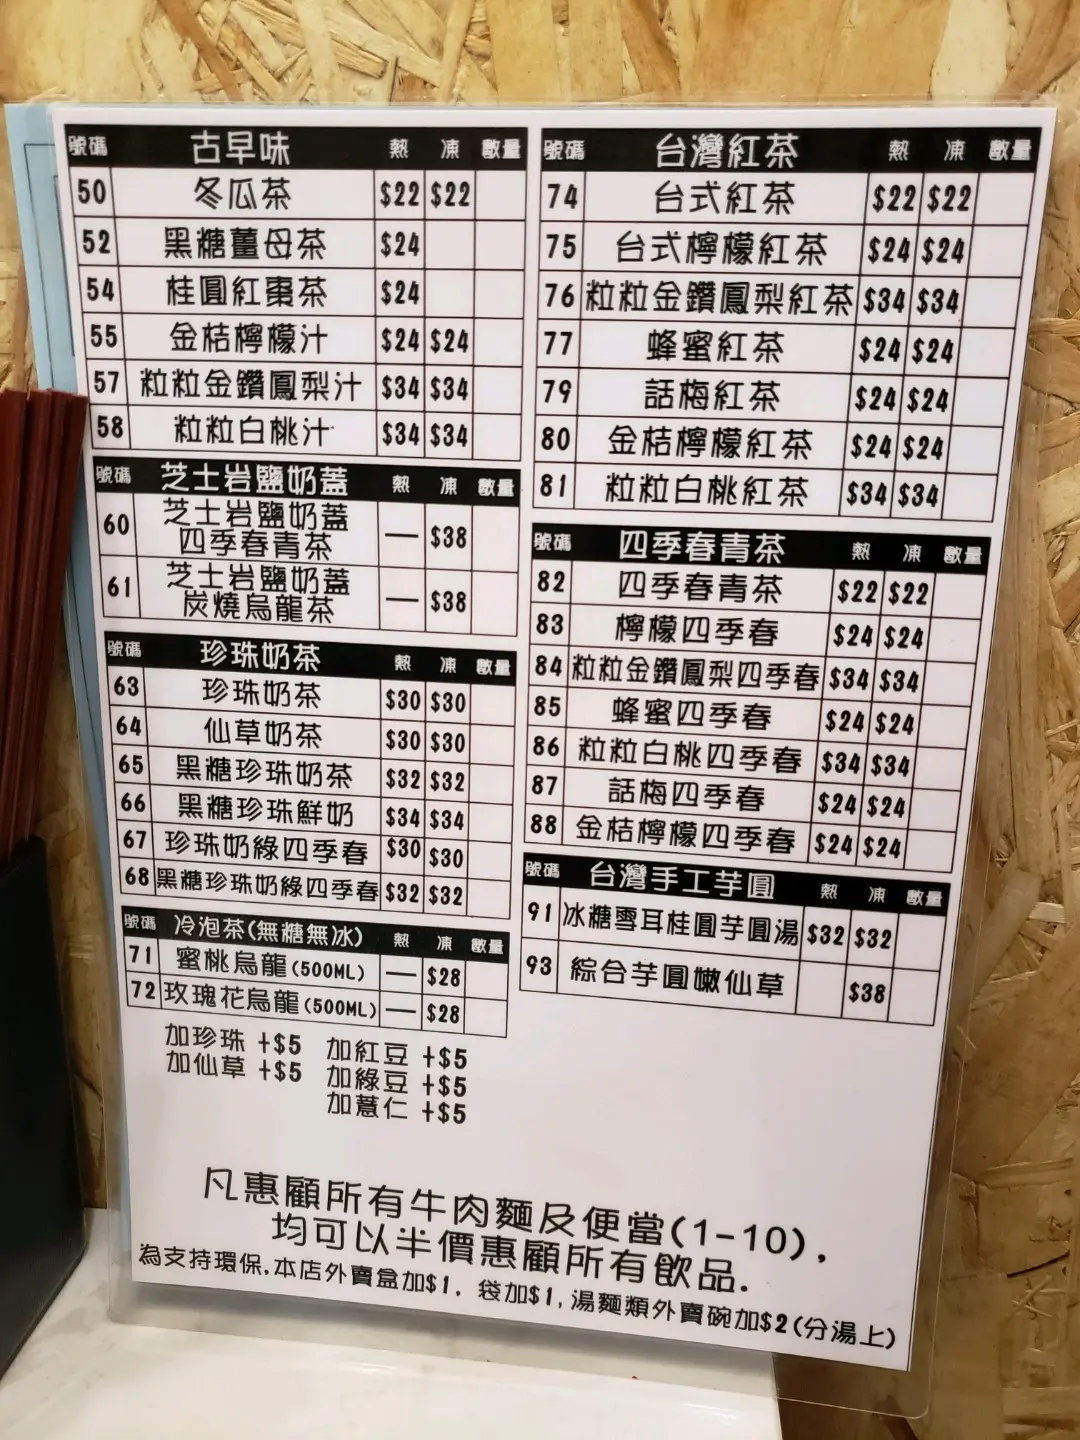 號碼 古早味 熱 凍 數量
50 冬瓜茶 $22 $22
52 黑糖薑母茶 $24
54 桂圓紅棗茶 $24
55 金桔檸檬汁 $24 $24
57 粒粒金鑽鳳梨汁 $34 $34
58 粒粒白桃汁 $34 $34
號碼 芝士岩鹽奶蓋 熱 凍 數量
60 芝士岩鹽奶蓋
四季春青茶 — $38
61 芝士岩鹽奶蓋
炭燒烏龍茶 — $38
號碼 珍珠奶茶 熱 凍 數量
63 珍珠奶茶 $30 $30
64 仙草奶茶 $30 $30
65 黑糖珍珠奶茶 $32 $32
66 黑糖珍珠鮮奶 $34 $34
67 珍珠奶綠四季春 $30 $30
68 黑糖珍珠奶綠四季春 $32 $32
號碼 冷泡茶(無糖無冰) 熱 凍 數量
71 蜜桃烏龍(500ML) — $28
72 玫瑰花烏龍(500ML) — $28
加珍珠 +$5 加紅豆 +$5
加仙草 +$5 加綠豆 +$5
加薏仁 +$5
號碼 台灣紅茶 熱 凍 數量
74 台式紅茶 $22 $22
75 台式檸檬紅茶 $24 $24
76 粒粒金鑽鳳梨紅茶 $34 $34
77 蜂蜜紅茶 $24 $24
79 話梅紅茶 $24 $24
80 金桔檸檬紅茶 $24 $24
81 粒粒白桃紅茶 $34 $34
號碼 四季春青茶 熱 凍 數量
82 四季春青茶 $22 $22
83 檸檬四季春 $24 $24
84 粒粒金鑽鳳梨四季春 $34 $34
85 蜂蜜四季春 $24 $24
86 粒粒白桃四季春 $34 $34
87 話梅四季春 $24 $24
88 金桔檸檬四季春 $24 $24
號碼 台灣手工芋圓 熱 凍 數量
91 冰糖雪耳桂圓芋圓湯 $32 $32
93 綜合芋圓嫩仙草 $38
凡惠顧所有牛肉麵及便當(1-10),
均可以半價惠顧所有飲品.
為支持環保.本店外賣盒加$1, 袋加$1,湯麵類外賣碗加$2(分湯上)